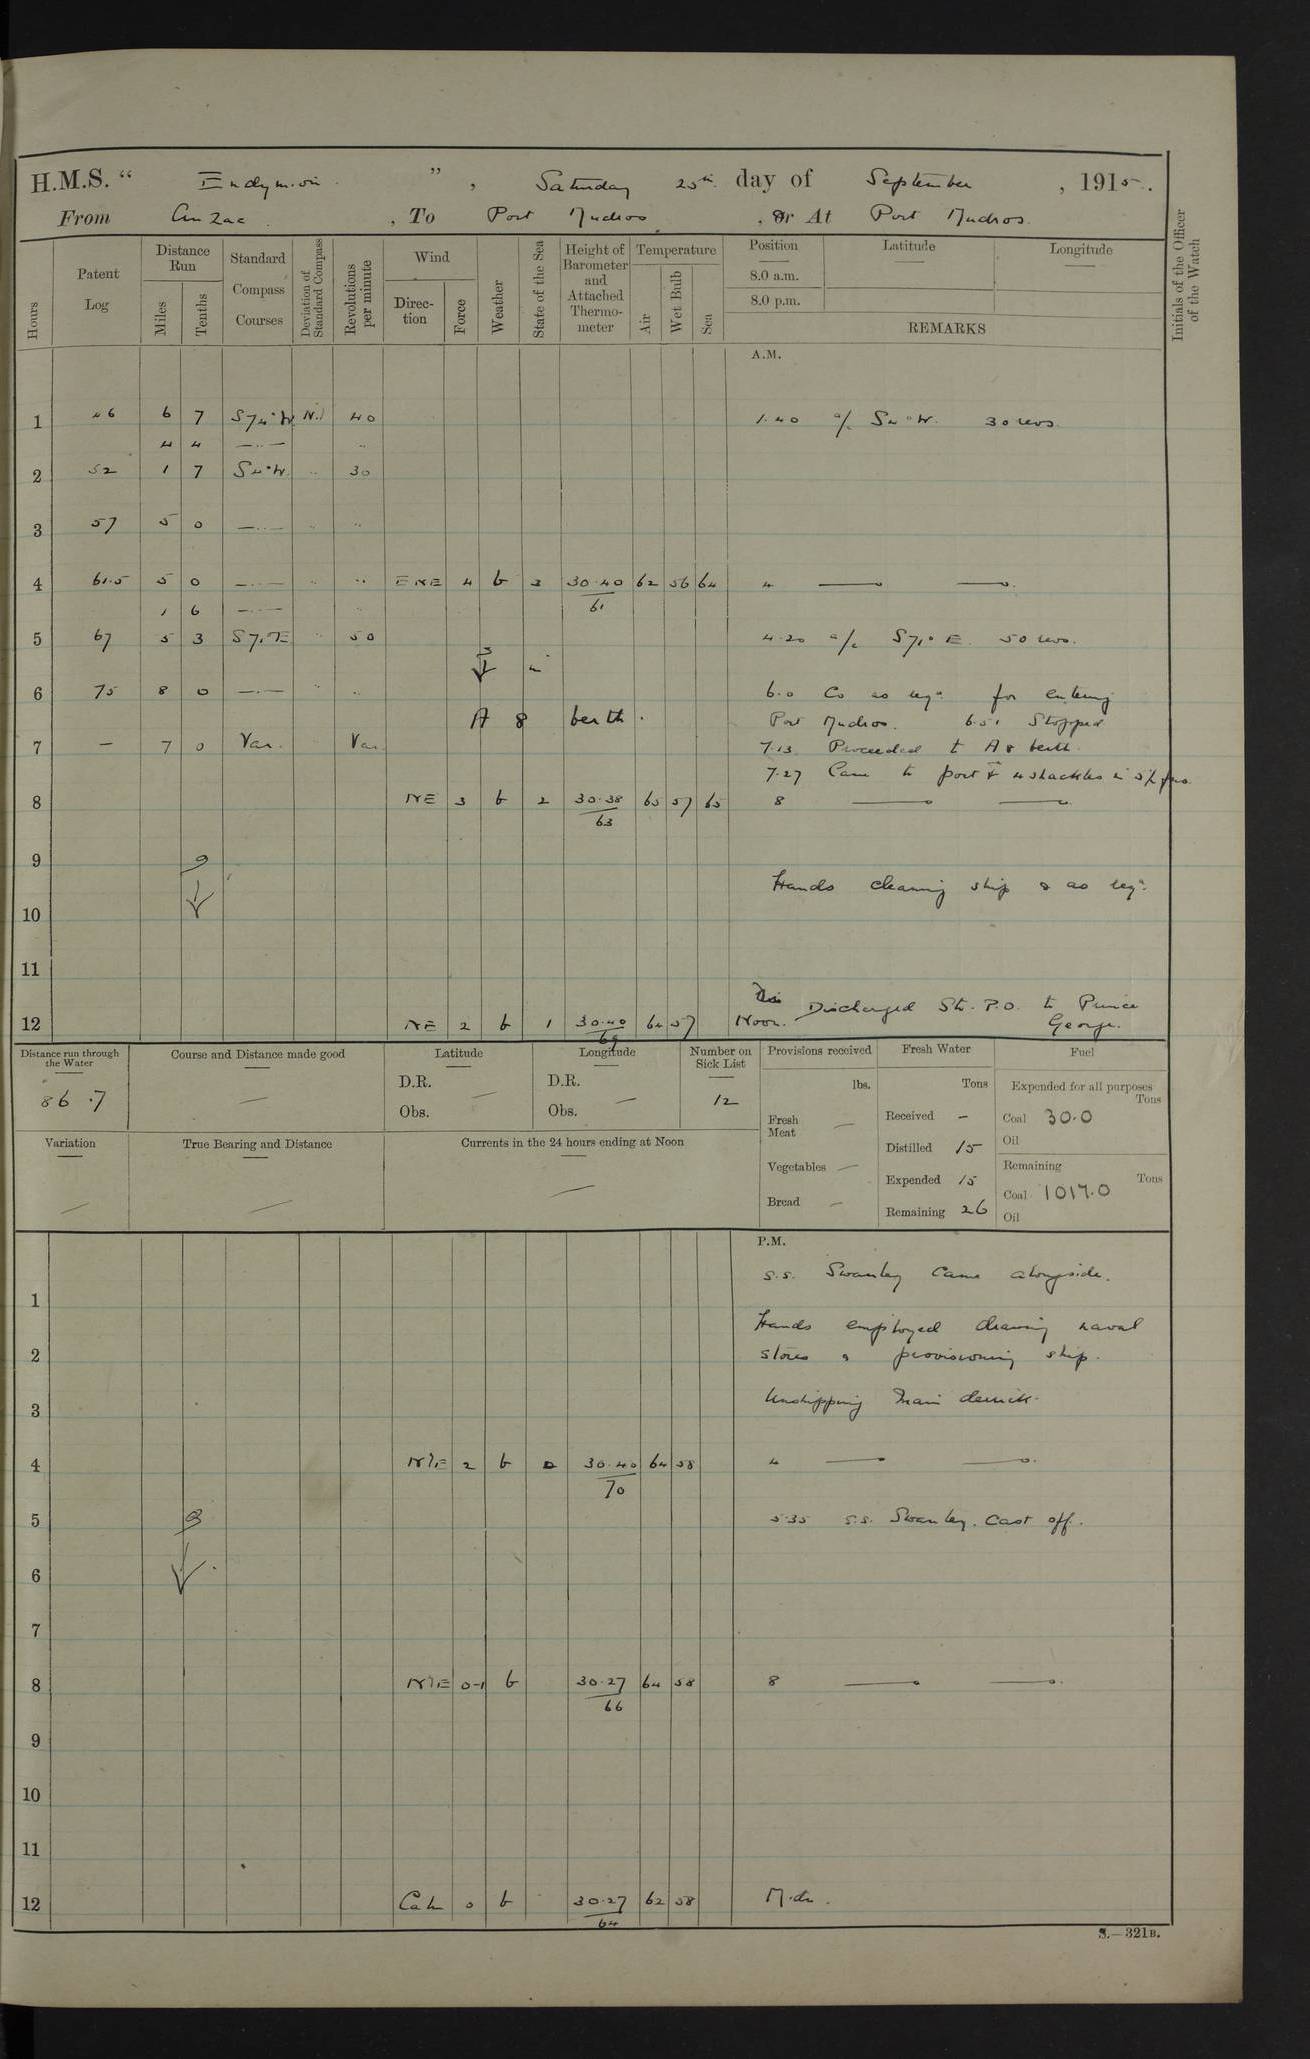 H.M.S. “ Endymion ” , Saturday 25th day of September , 1915.
From Anzac , To Port Mudros , or At Port Mudros
Hours
Patent Log
Distance Run
Miles
Tenths
Standard Compass Courses
Deviation of Standard Compass
Revolutions per minute
Wind
Direction
Force
Weather
State of the Sea
Height of Barometer and Attached Thermometer
Temperature
Air
Wet Bulb
Sea
Position
Latitude
Longitude
8.0 a.m.
8.0 p.m.
REMARKS
Initials of the Officer of the Watch
A.M.
1 46 6 7 S74°W Nil 40 1.40 a/c S4°W. 30 revs.
4 4 —"— "
2 52 1 7 S4°W " 30
3 57 5 0 —"— " "
4 61.5 5 0 —"— " " ENE 4 b 3 30.40 62 56 64 4 —— ——
61
1 6 —"— "
5 67 5 3 S71°E " 50 4.20 a/c S71°E. 50 revs.
6 75 8 0 —"— " " 6.0 Co as reqd. for entering
A 8 berth. Port Mudros. 6.51 Stopped
7 — 7 0 Var. Var. 7.13 Proceeded to A8 berth.
7.27 Came to port 4 shackles in 5½ fms.
8 NE 3 b 2 30.38 65 57 65 8 —— ——
63
9
Hands cleaning ship & as reqd.
10
11
12 NE 2 b 1 30.40 64 57 Noon. Discharged St. P.O. to Prince
69 George.
Distance run through the Water
86.7
Course and Distance made good
—
Latitude
D.R. —
Obs.
Longitude
D.R.
Obs. —
Number on Sick List
12
Provisions received
lbs.
Fresh Meat —
Vegetables —
Bread —
Fresh Water
Tons
Received —
Distilled 15
Expended 15
Remaining 26
Fuel
Expended for all purposes
Tons
Coal 30.0
Oil
Remaining
Tons
Coal 1017.0
Oil
Variation
—
True Bearing and Distance
—
Currents in the 24 hours ending at Noon
—
P.M.
s.s. Swanley came alongside.
1
Hands employed drawing naval
2 stores & provisioning ship.
3 Unshipping main derrick.
4 2 b 30.40 64 58 4 —— ——
70
5 5.35 s.s. Swanley. Cast off.
6
7
8 0-1 b 30.27 64 58 8 —— ——
66
9
10
11
12 Calm 0 b 30.27 62 58 Mdn.
64
S.—321B.